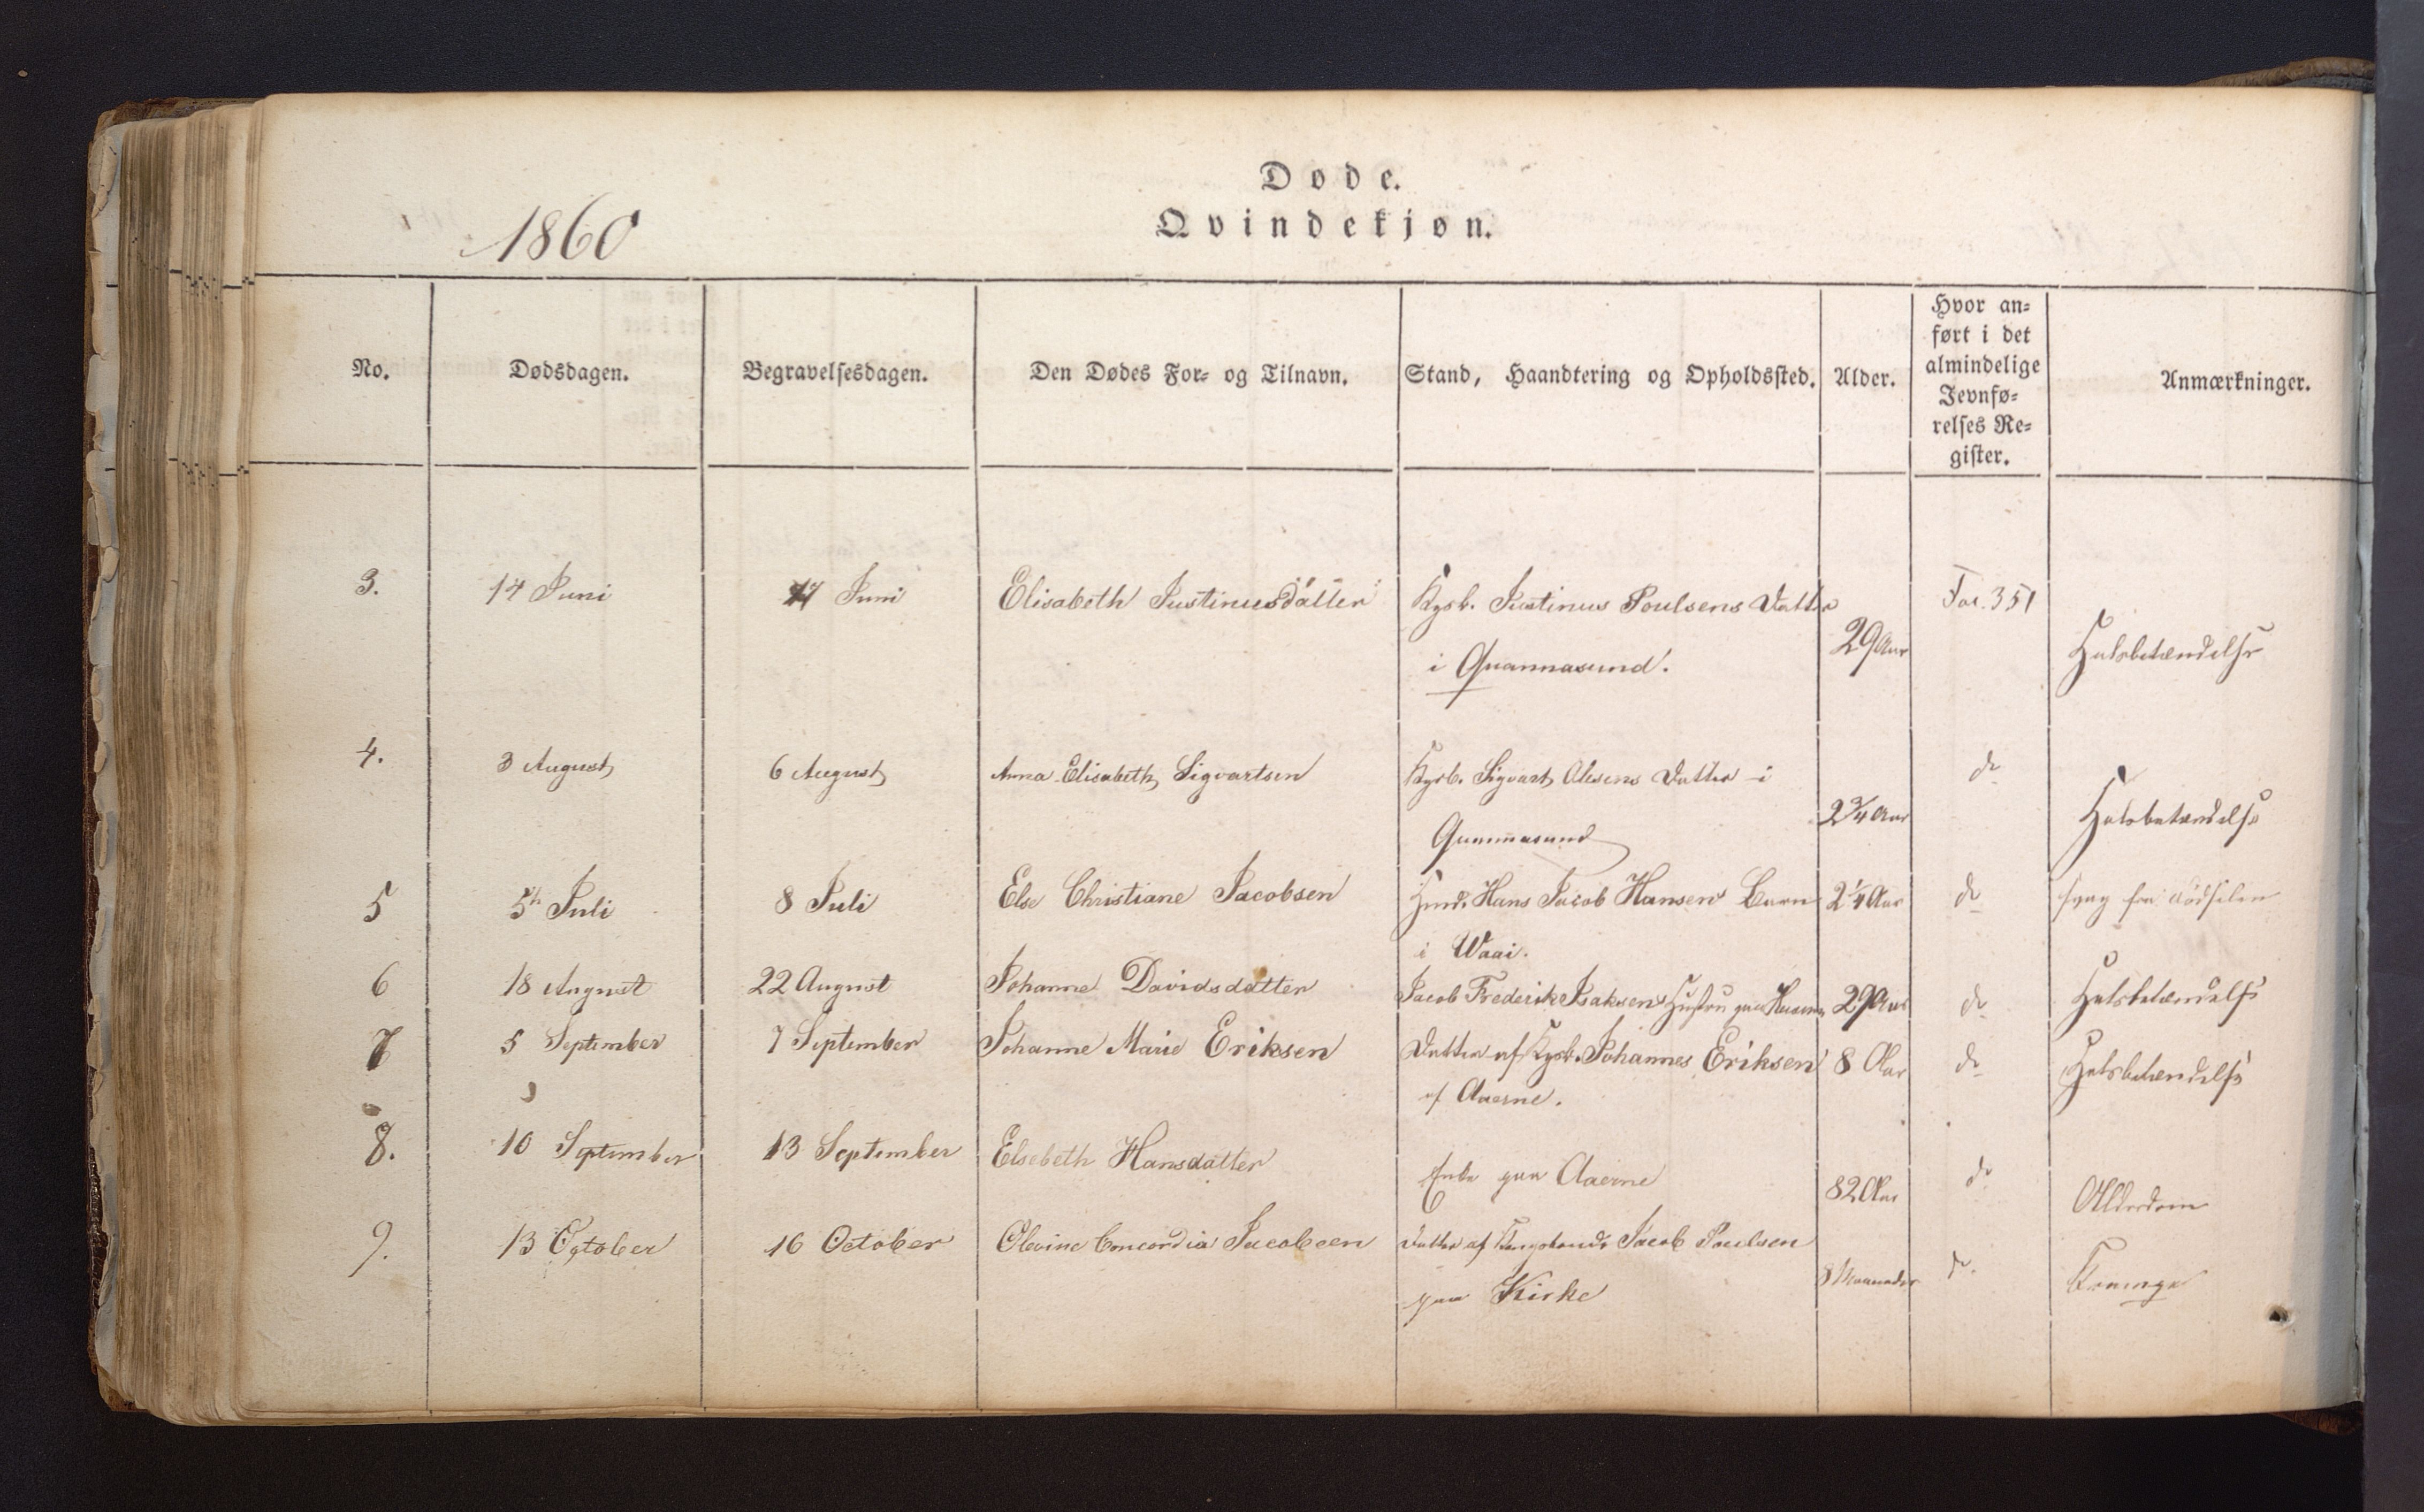 1860
Døde.
Qvindekjøn.
No. Dødsdagen. Begravelsesdagen. Den Dødes For- og Tilnavn. Stand, Haandtering og Opholdssted. Alder. Hvor an-
ført i det
almindelige
Jevnfø-
relses Re-
gister. Anmærkninger.
3. 14 Juni 17 Juni Elisabeth Justinusdatter Kgsb. Justinus Poulsens Datter
i Quannasund. 29 Aar Fol. 351 Halsbetændelse
4. 3 August 6 August Anna Elisabeth Sigvartsen Kgsb. Sigvart Olesens Datter i
Quannasund 2 3/4 Aar do Halsbetændelse
5 5te Juli 8 Juli Else Christiane Jacobsen Huusm. Hans Jacob Hansens Barn
i Waai. 2 1/4 Aar do syag fra Fødselen
6 18 August 22 August Johanne Davidsdatter Jacob Frederik Isaksens Hustru paa 29 Aar do Halsbetændelse
7 5 September 7 September Johanne Marie Eriksen Datter af Kgsb. Johannes Eriksen
af Aaerne. 8 Aar do Halsbetændelse
8. 10 September 13 September Elsebeth Hansdatter Enke paa Aaerne 82 Aar do Alderdom
9. 13 October 16 October Olevine Concordia Jacobsen Datter af Kongsbonde Jacob Poulsen
paa Kirke 8 Maaneder do.